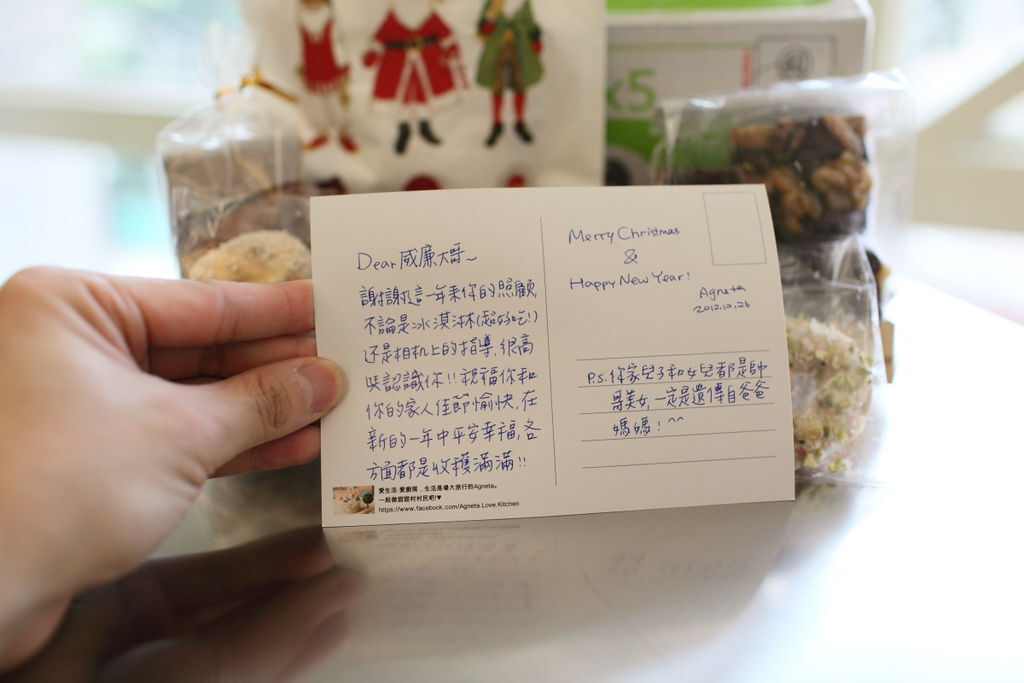 x5
Dear 威廉大哥~
謝謝這一年來你的照顧,
不論是冰淇淋(超好吃!)
还是相机上的指導,很高
興認識你!!祝福你和
你的家人佳節愉快,在
新的一年中平安幸福,各
方面都是收穫滿滿!!
愛生活‧愛廚房,生活是場大旅行的Agneta。
一起做甜甜村村民吧!♥
https://www.facebook.com/Agneta.Love.Kitchen
Merry Christmas
&
Happy New Year!
Agneta
2012.12.26
P.S. 你家兒子和女兒都是帥
哥美女,一定是遺傳自爸爸
媽媽! ^^